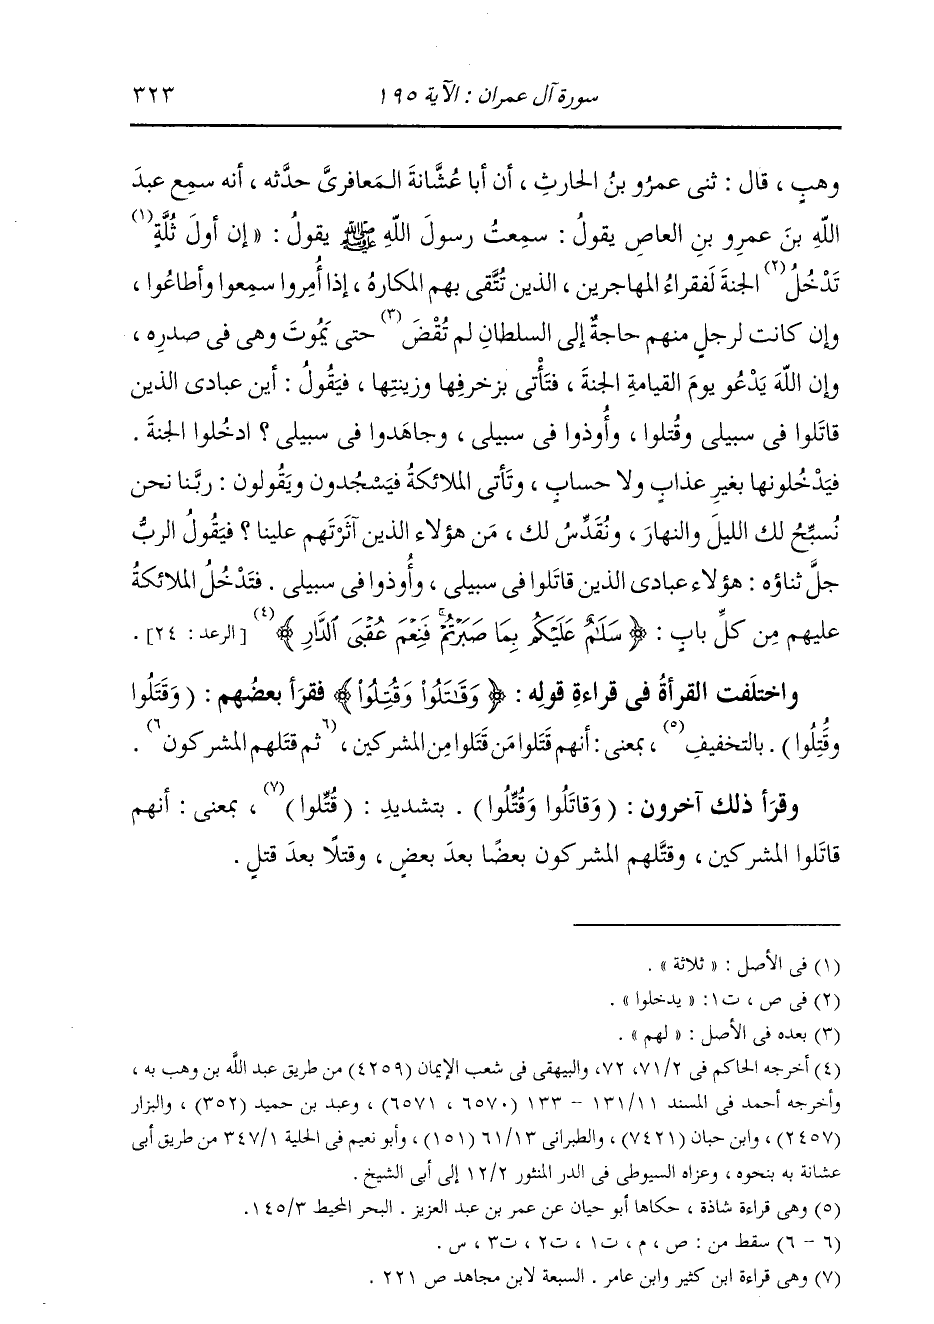 سورة آل عمران : الآية ١٩٥ ٣٢٣
وهبٍ ، قال : ثنى عمرُو بنُ الحارثِ ، أن أبا عُشَّانةَ المَعافرىَّ حدَّثه ، أنه سمِع عبدَ
اللَّهِ بنَ عمرِو بنِ العاصِ يقولُ : سمِعتُ رسولَ اللَّهِ ﷺ يقولُ : « إن أولَ ثُلَّةٍ(١)
تَدْخُلُ(٢) الجنةَ لَفقراءُ المهاجرين ، الذين تُتَّقى بهم المكارهُ ، إذا أُمِروا سمِعوا وأطاعُوا ،
وإن كانت لرجلٍ منهم حاجةٌ إلى السلطانِ لم تُقْضَ(٣) حتى يَمُوتَ وهى فى صدرِه ،
وإن اللَّهَ يَدْعُو يومَ القيامةِ الجنةَ ، فتَأْتى بزخرفِها وزينتِها ، فيَقُولُ : أين عبادى الذين
قاتَلوا فى سبيلى وقُتلوا ، وأُوذوا فى سبيلى ، وجاهَدوا فى سبيلى ؟ ادخُلوا الجنةَ .
فيَدْخُلونها بغيرِ عذابٍ ولا حسابٍ ، وتَأتى الملائكةُ فيَسْجُدون ويَقُولون : ربَّنا نحن
نُسبِّحُ لك الليلَ والنهارَ ، ونُقَدِّسُ لك ، مَن هؤلاء الذين آثَرْتَهم علينا ؟ فيَقُولُ الربُّ
جلَّ ثناؤه : هؤلاء عبادى الذين قاتَلوا فى سبيلى ، وأُوذوا فى سبيلى . فتَدْخُلُ الملائكةُ
عليهم مِن كلِّ بابٍ : ﴿ سَلَٰمٌ عَلَيْكُم بِمَا صَبَرْتُمْ ۚ فَنِعْمَ عُقْبَى ٱلدَّارِ ﴾(٤) [ الرعد : ٢٤] .
واختلَفت القرأةُ فى قراءةِ قولِه : ﴿ وَقَٰتَلُوا۟ وَقُتِلُوا۟ ﴾ فقرَأ بعضُهم : ( وَقَتَلُوا
وقُتِلُوا ) . بالتخفيفِ(٥) ، بمعنى : أنهم قَتَلوا مَن قَتَلوا مِن المشركين ، (٦ثم قتَلهم المشركون٦) .
وقرَأ ذلك آخرون : ( وَقاتَلُوا وَقُتِّلُوا ) . بتشديدِ : ( قُتِّلوا )(٧) ، بمعنى : أنهم
قاتَلوا المشركين ، وقتَّلهم المشركون بعضًا بعدَ بعضٍ ، وقتلًا بعدَ قتلٍ .
(١) فى الأصل : « ثلاثة » .
(٢) فى ص ، ت١: « يدخلوا » .
(٣) بعده فى الأصل : « لهم » .
(٤) أخرجه الحاكم فى ٧١/٢، ٧٢، والبيهقى فى شعب الإيمان (٤٢٥٩) من طريق عبد اللَّه بن وهب به ،
وأخرجه أحمد فى المسند ١٣١/١١ – ١٣٣ (٦٥٧٠ ، ٦٥٧١) ، وعبد بن حميد (٣٥٢) ، والبزار
(٢٤٥٧) ، وابن حبان (٧٤٢١) ، والطبرانى ٦١/١٣ (١٥١) ، وأبو نعيم فى الحلية ٣٤٧/١ من طريق أبى
عشانة به بنحوه ، وعزاه السيوطى فى الدر المنثور ١١٢/٢ إلى أبى الشيخ .
(٥) وهى قراءة شاذة ، حكاها أبو حيان عن عمر بن عبد العزيز . البحر المحيط ١٤٥/٣.
(٦ – ٦) سقط من : ص ، م ، ت١ ، ت٢ ، ت٣ ، س .
(٧) وهى قراءة ابن كثير وابن عامر . السبعة لابن مجاهد ص ٢٢١ .